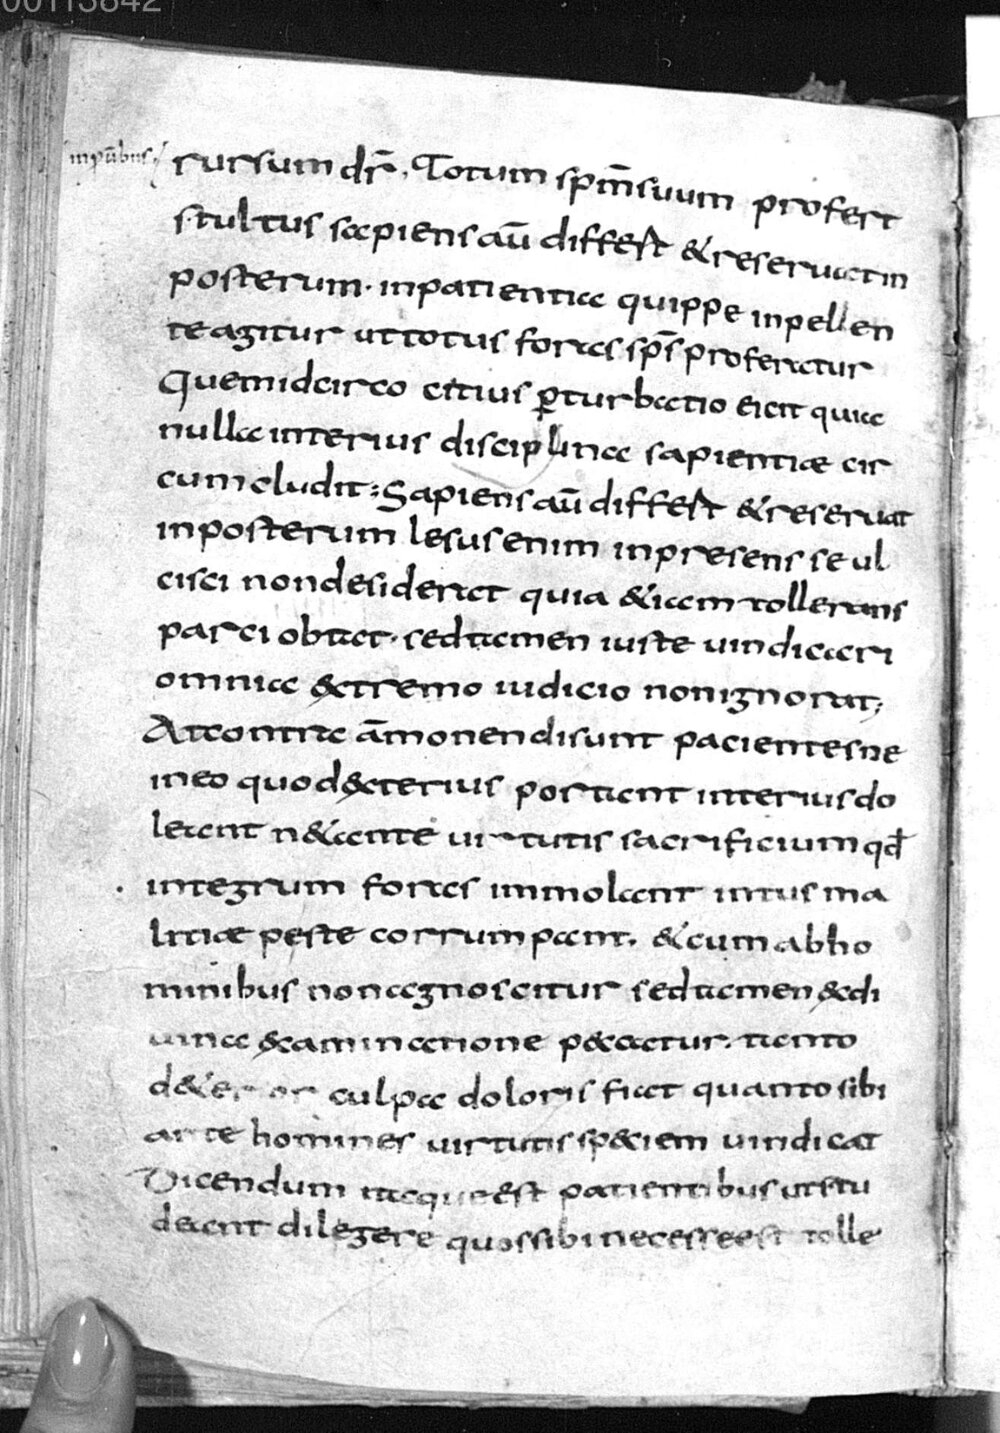 00113842
inpūbus
rursum dr̄. Totum spm̄ suum profert
stultus sapiens aū differt & reseruat in
posterum. inpatientia quippe inpellen
te agitur ut totus foras sp̄s proferatur
Quem idcirco citius ꝑturbatio eicit quia
nulla interius disciplina sapientiæ cir
cumcludit; Sapiens aū differt & reseruat
inposterum lesus enim inpresens se ul
cisci non desiderat quia & iam tollerans
parci obtat. sed tamen iuste uindicari
omnia &tremo iudicio non ignorat;
At contra āmonendi sunt pacientes ne
in eo quod &terius portant interius do
leant n& tante uirtutis sacrificium qd̄
integrum foras immolant intus ma
litiæ peste corrumpant. & cum ab ho
minibus non agnoscitur sed tamen &di
uina &aminatione p&catur. tanto
d&erior culpa doloris fiat quanto sibi
ante homines uirtutis sp&iem uindicat
Dicendum itaque est patientibus ut stu
deant dilegere quos sibi necesse est tolle